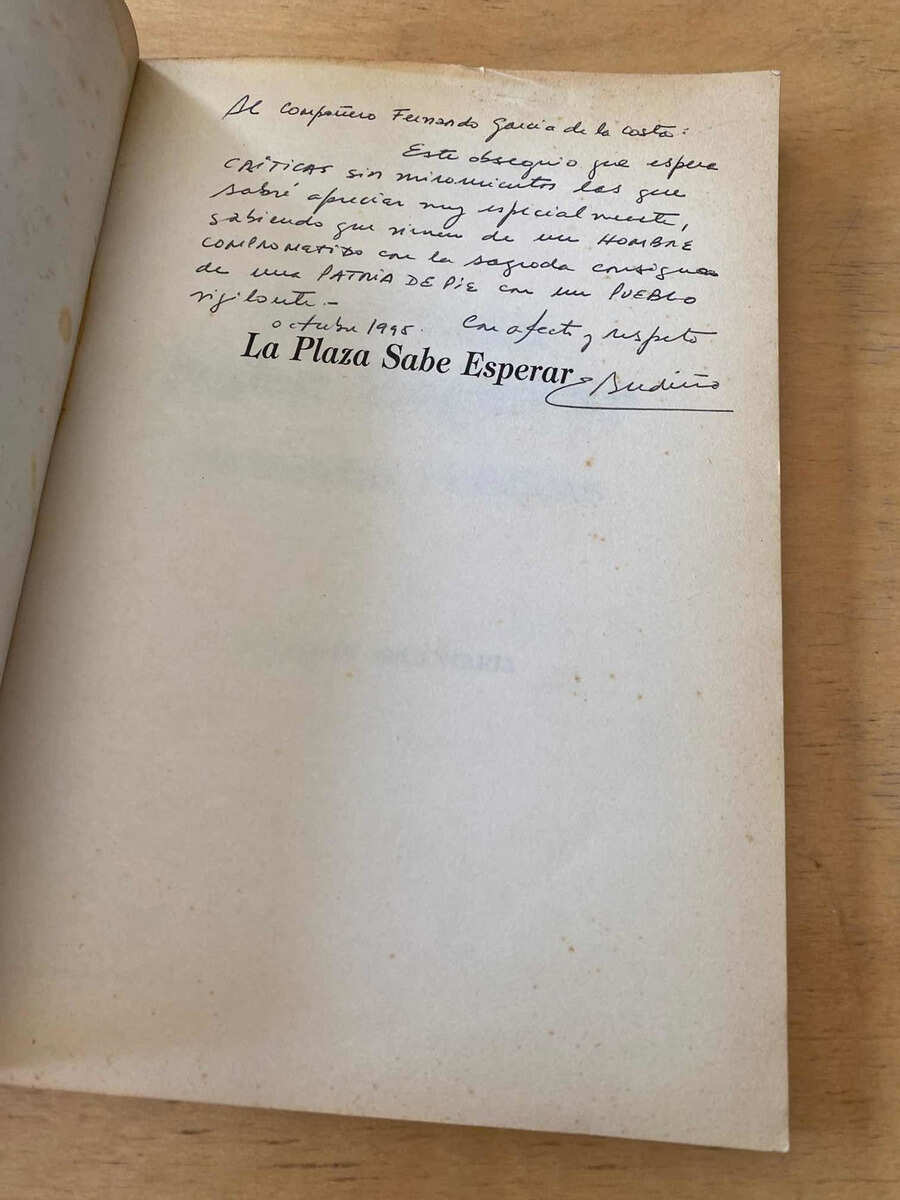 Al compañero Fernando Garcia de la Costa:
Este obsequio que espera
CRÍTICAS sin miramientos las que
sabré apreciar muy especialmente,
sabiendo que vienen de un HOMBRE
COMPROMETIDO con la sagrada consigna
de una PATRIA DE PIE con un PUEBLO
vigilante.-
octubre 1995. Con afecto y respeto
La Plaza Sabe Esperar